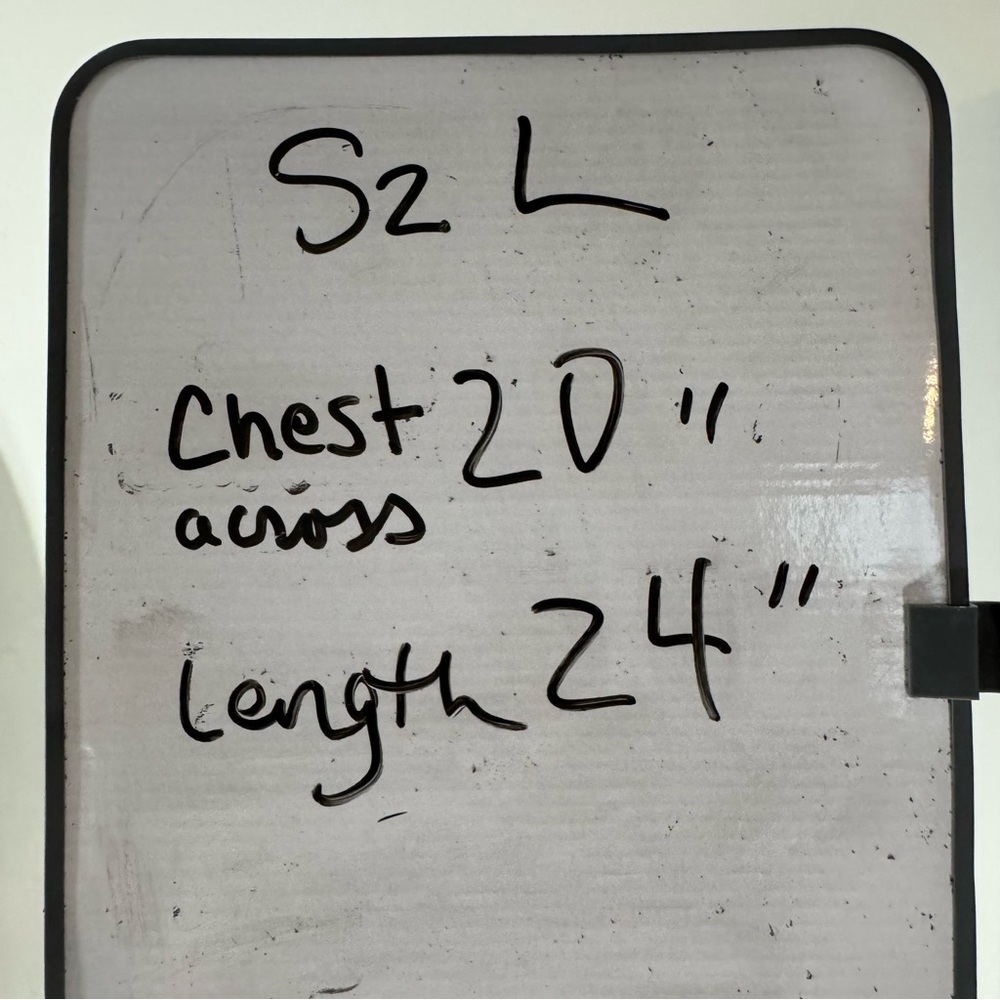 Sz L
Chest 20"
across
Length 24"